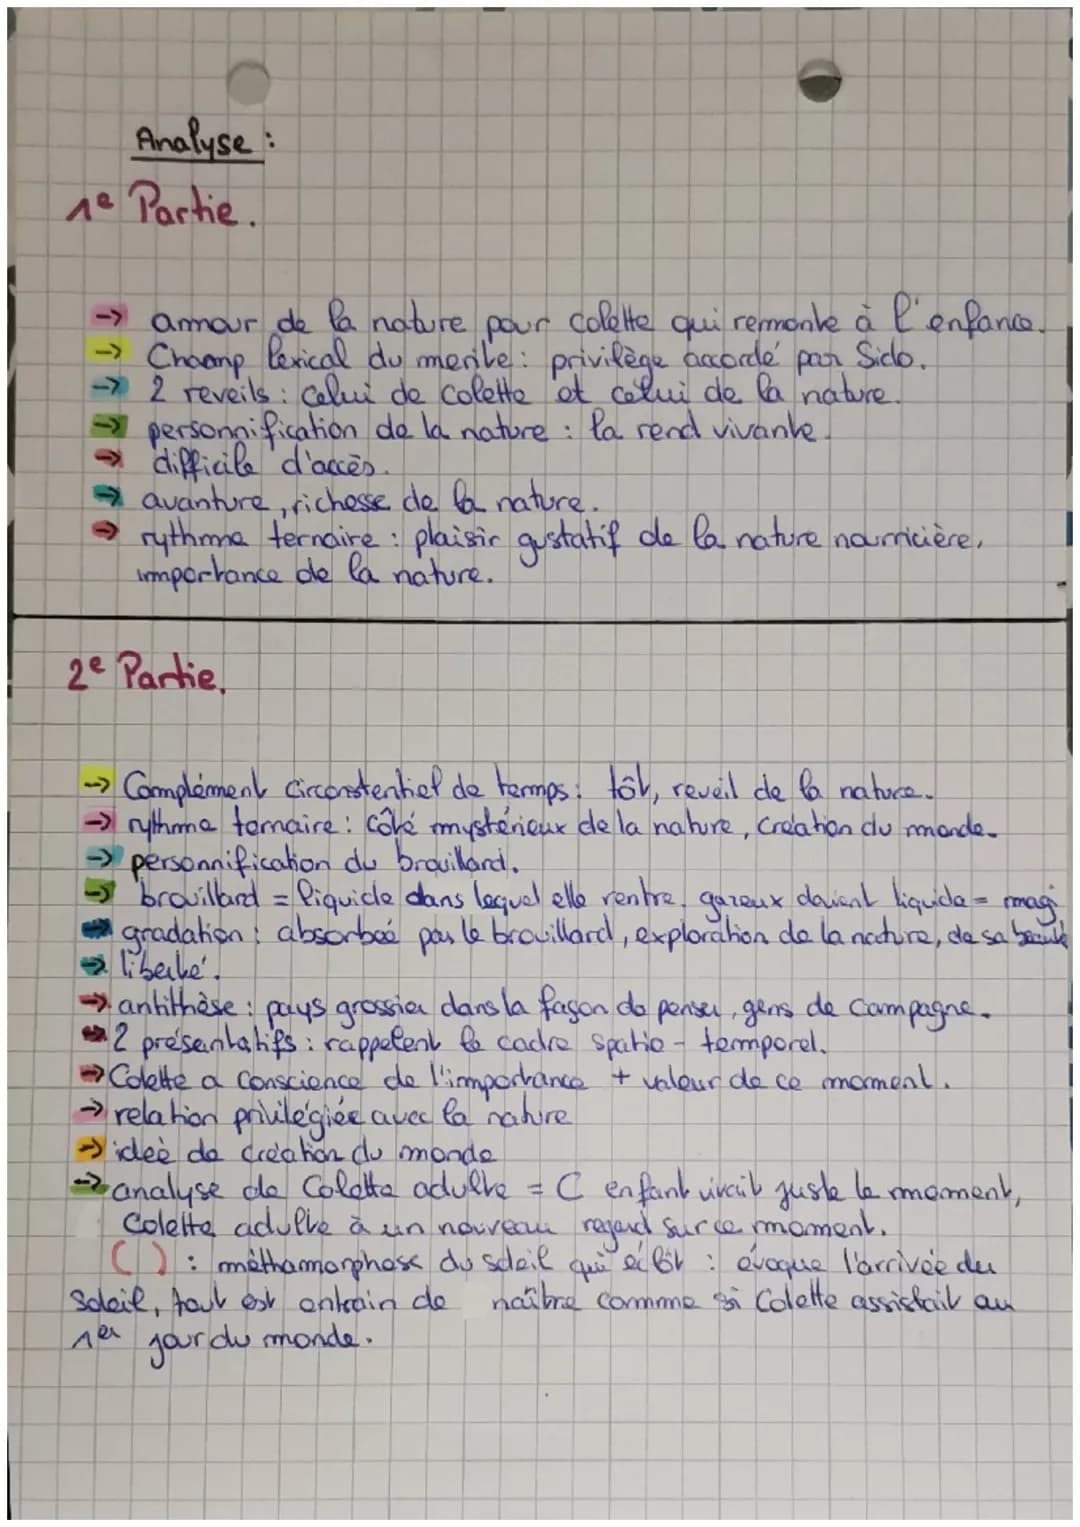 Analyse :
1e Partie.
-> amour de la nature pour Colette qui remonte à l'enfance.
-> Champ lexical du mérite : privilège accordé par Sido.
-> 2 reveils : celui de Colette et celui de la nature.
-> personnification de la nature : la rend vivante.
-> difficile d'accès.
-> avanture, richesse de la nature.
-> rythme ternaire : plaisir gustatif de la nature nourricière,
importance de la nature.
2e Partie.
-> Complément circonstentiel de temps : tôt, reveil de la nature.
-> rythme ternaire : côté mystérieux de la nature, création du monde.
-> personnification du brouillard.
-> brouillard = liquide dans lequel elle rentre, gazeux devient liquide = magi
-> gradation : absorbée par le brouillard, exploration de la nature, de sa beauté
-> liberté.
-> antithèse : pays grossier dans la façon de penser, gens de campagne.
-> 2 présentatifs : rappelent le cadre spatio - temporel.
-> Colette a conscience de l'importance + valeur de ce moment.
-> relation privilégiée avec la nature
-> ideè de création du monde
-> analyse de Colette adulte = C enfant vivait juste le moment,
Colette adulte à un nouveau regard sur ce moment.
( ) : méthamorphose du soleil qui éclôt : évoque l'arrivée du
Soleil, tout est entrain de naître comme si Colette assistait au
1er jour du monde.